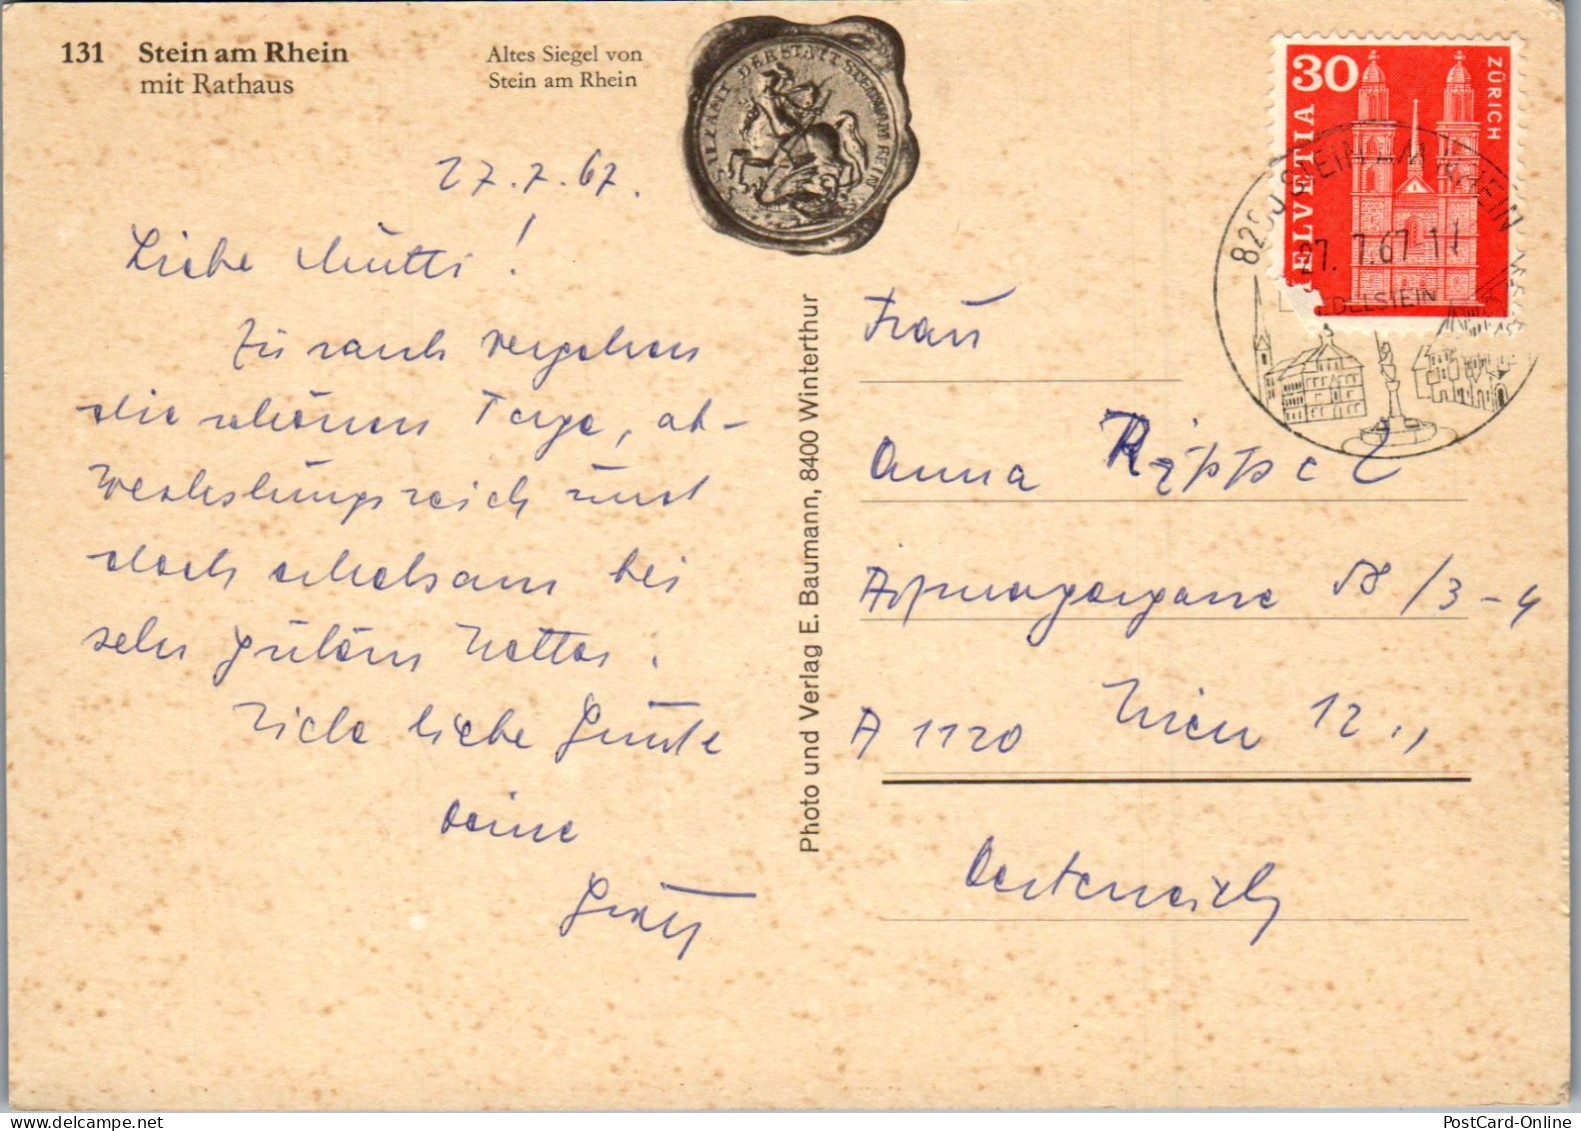 131 Stein am Rhein
mit Rathaus
Altes Siegel von
Stein am Rhein
27.7.67.
Liebe Mutti!
Zu rasch vergehen
die schönen Tage, ab-
wechslungsreich und
doch erholsam bei
sehr gutem Wetter.
Viele liebe Grüße
Deine
Photo und Verlag E. Baumann, 8400 Winterthur
30
HELVETIA
ZÜRICH
STEIN AM RHEIN
27. 7.67
EDELSTEIN
Frau
Anna Rippel
58/3-4
A 1120 Wien 12.,
Oesterreich
PostCard-Online